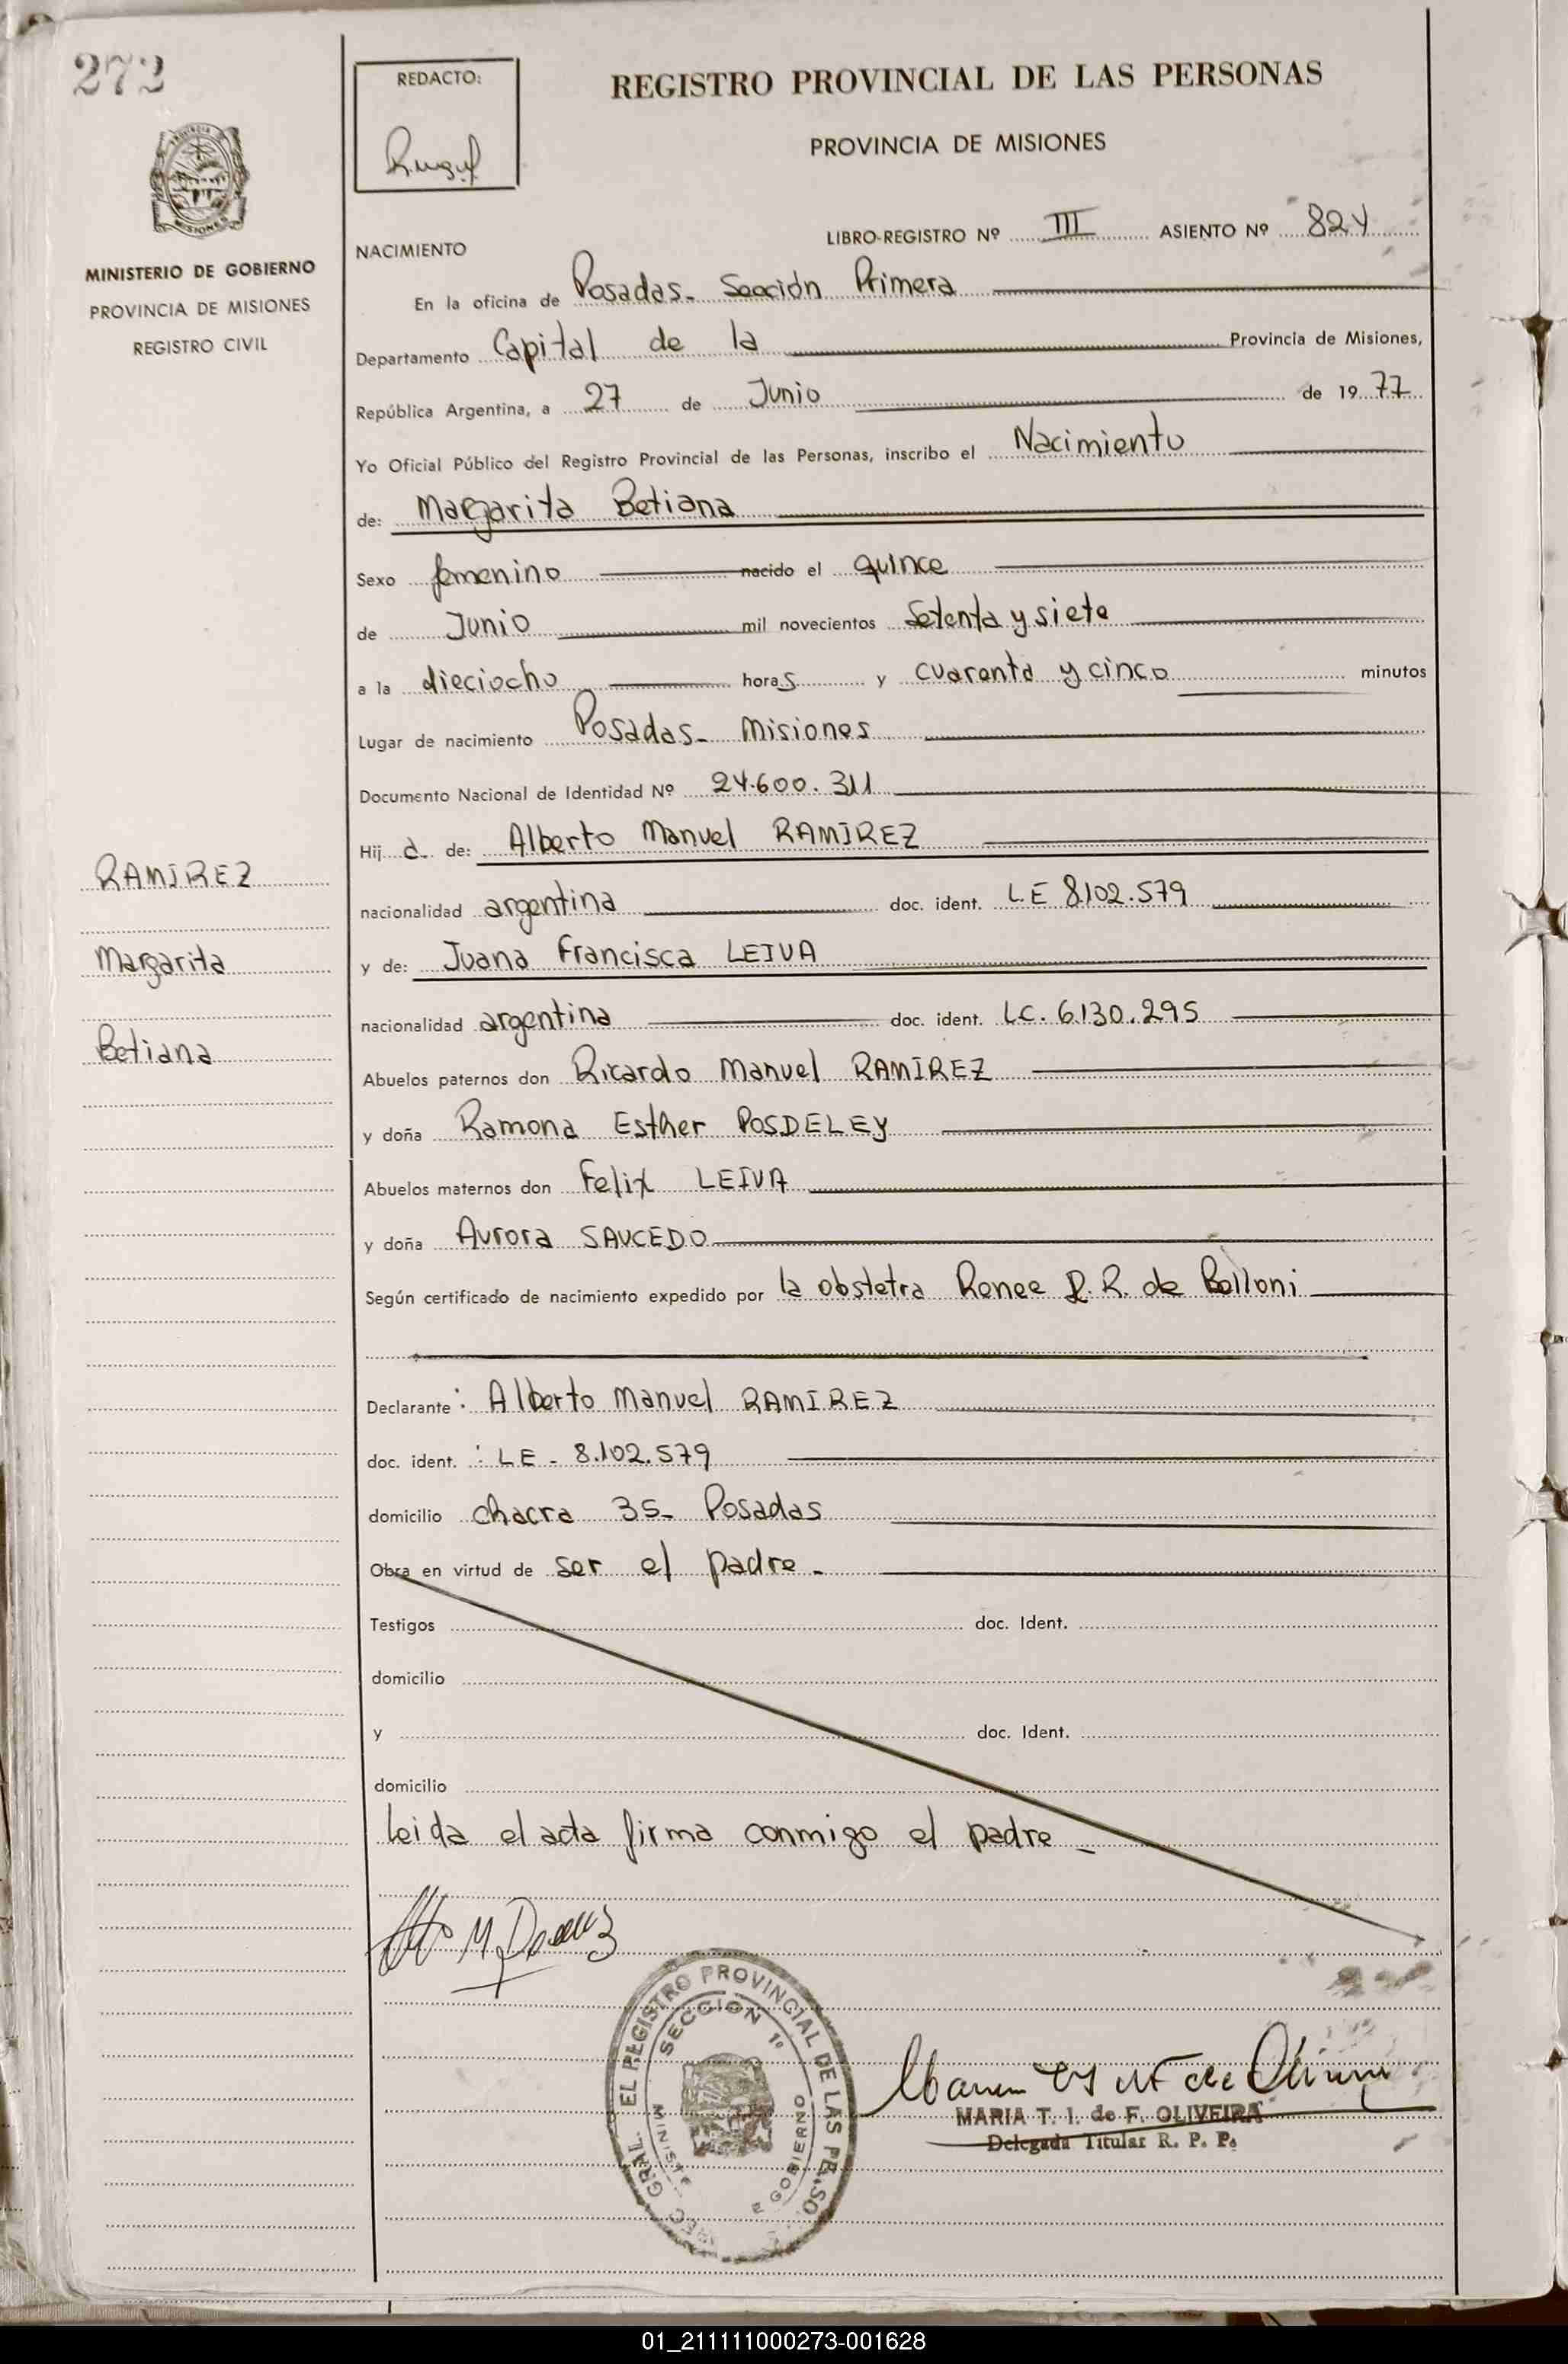 272
REDACTO:
REGISTRO PROVINCIAL DE LAS PERSONAS
PROVINCIA DE MISIONES
MISIONES
MINISTERIO DE GOBIERNO
PROVINCIA DE MISIONES
REGISTRO CIVIL
LIBRO-REGISTRO Nº III ASIENTO Nº 824
NACIMIENTO
En la oficina de Posadas- Sección Primera
Departamento Capital de la Provincia de Misiones,
República Argentina, a 27 de Junio de 1977
Yo Oficial Público del Registro Provincial de las Personas, inscribo el Nacimiento
de: Margarita Betiana
Sexo femenino nacido el quince
de Junio mil novecientos Setenta y siete
a la dieciocho horas y cuarenta y cinco minutos
Lugar de nacimiento Posadas- Misiones
Documento Nacional de Identidad Nº 24.600.311
Hij a de: Alberto Manuel RAMIREZ
nacionalidad argentina doc. ident. LE 8.102.579
y de: Juana Francisca LEIVA
nacionalidad argentina doc. ident. LC. 6.130.295
Abuelos paternos don Ricardo Manuel RAMIREZ
y doña Ramona Esther POSDELEY
Abuelos maternos don Felix LEIVA
y doña Aurora SAUCEDO
Según certificado de nacimiento expedido por la obstetra Renee R. R. de Belloni
Declarante: Alberto Manuel RAMIREZ
doc. ident. : LE - 8.102.579
domicilio chacra 35- Posadas
Obra en virtud de ser el padre -
Testigos doc. Ident.
domicilio
y doc. Ident.
domicilio
Leida el acta firma conmigo el padre -
RAMIREZ
Margarita
Betiana
EL REGISTRO PROVINCIAL DE LAS
SECCION 1º
GOBIERNO
MARIA T. I. de F. OLIVEIRA
Delegada Titular R. P. P.
01_211111000273-001628